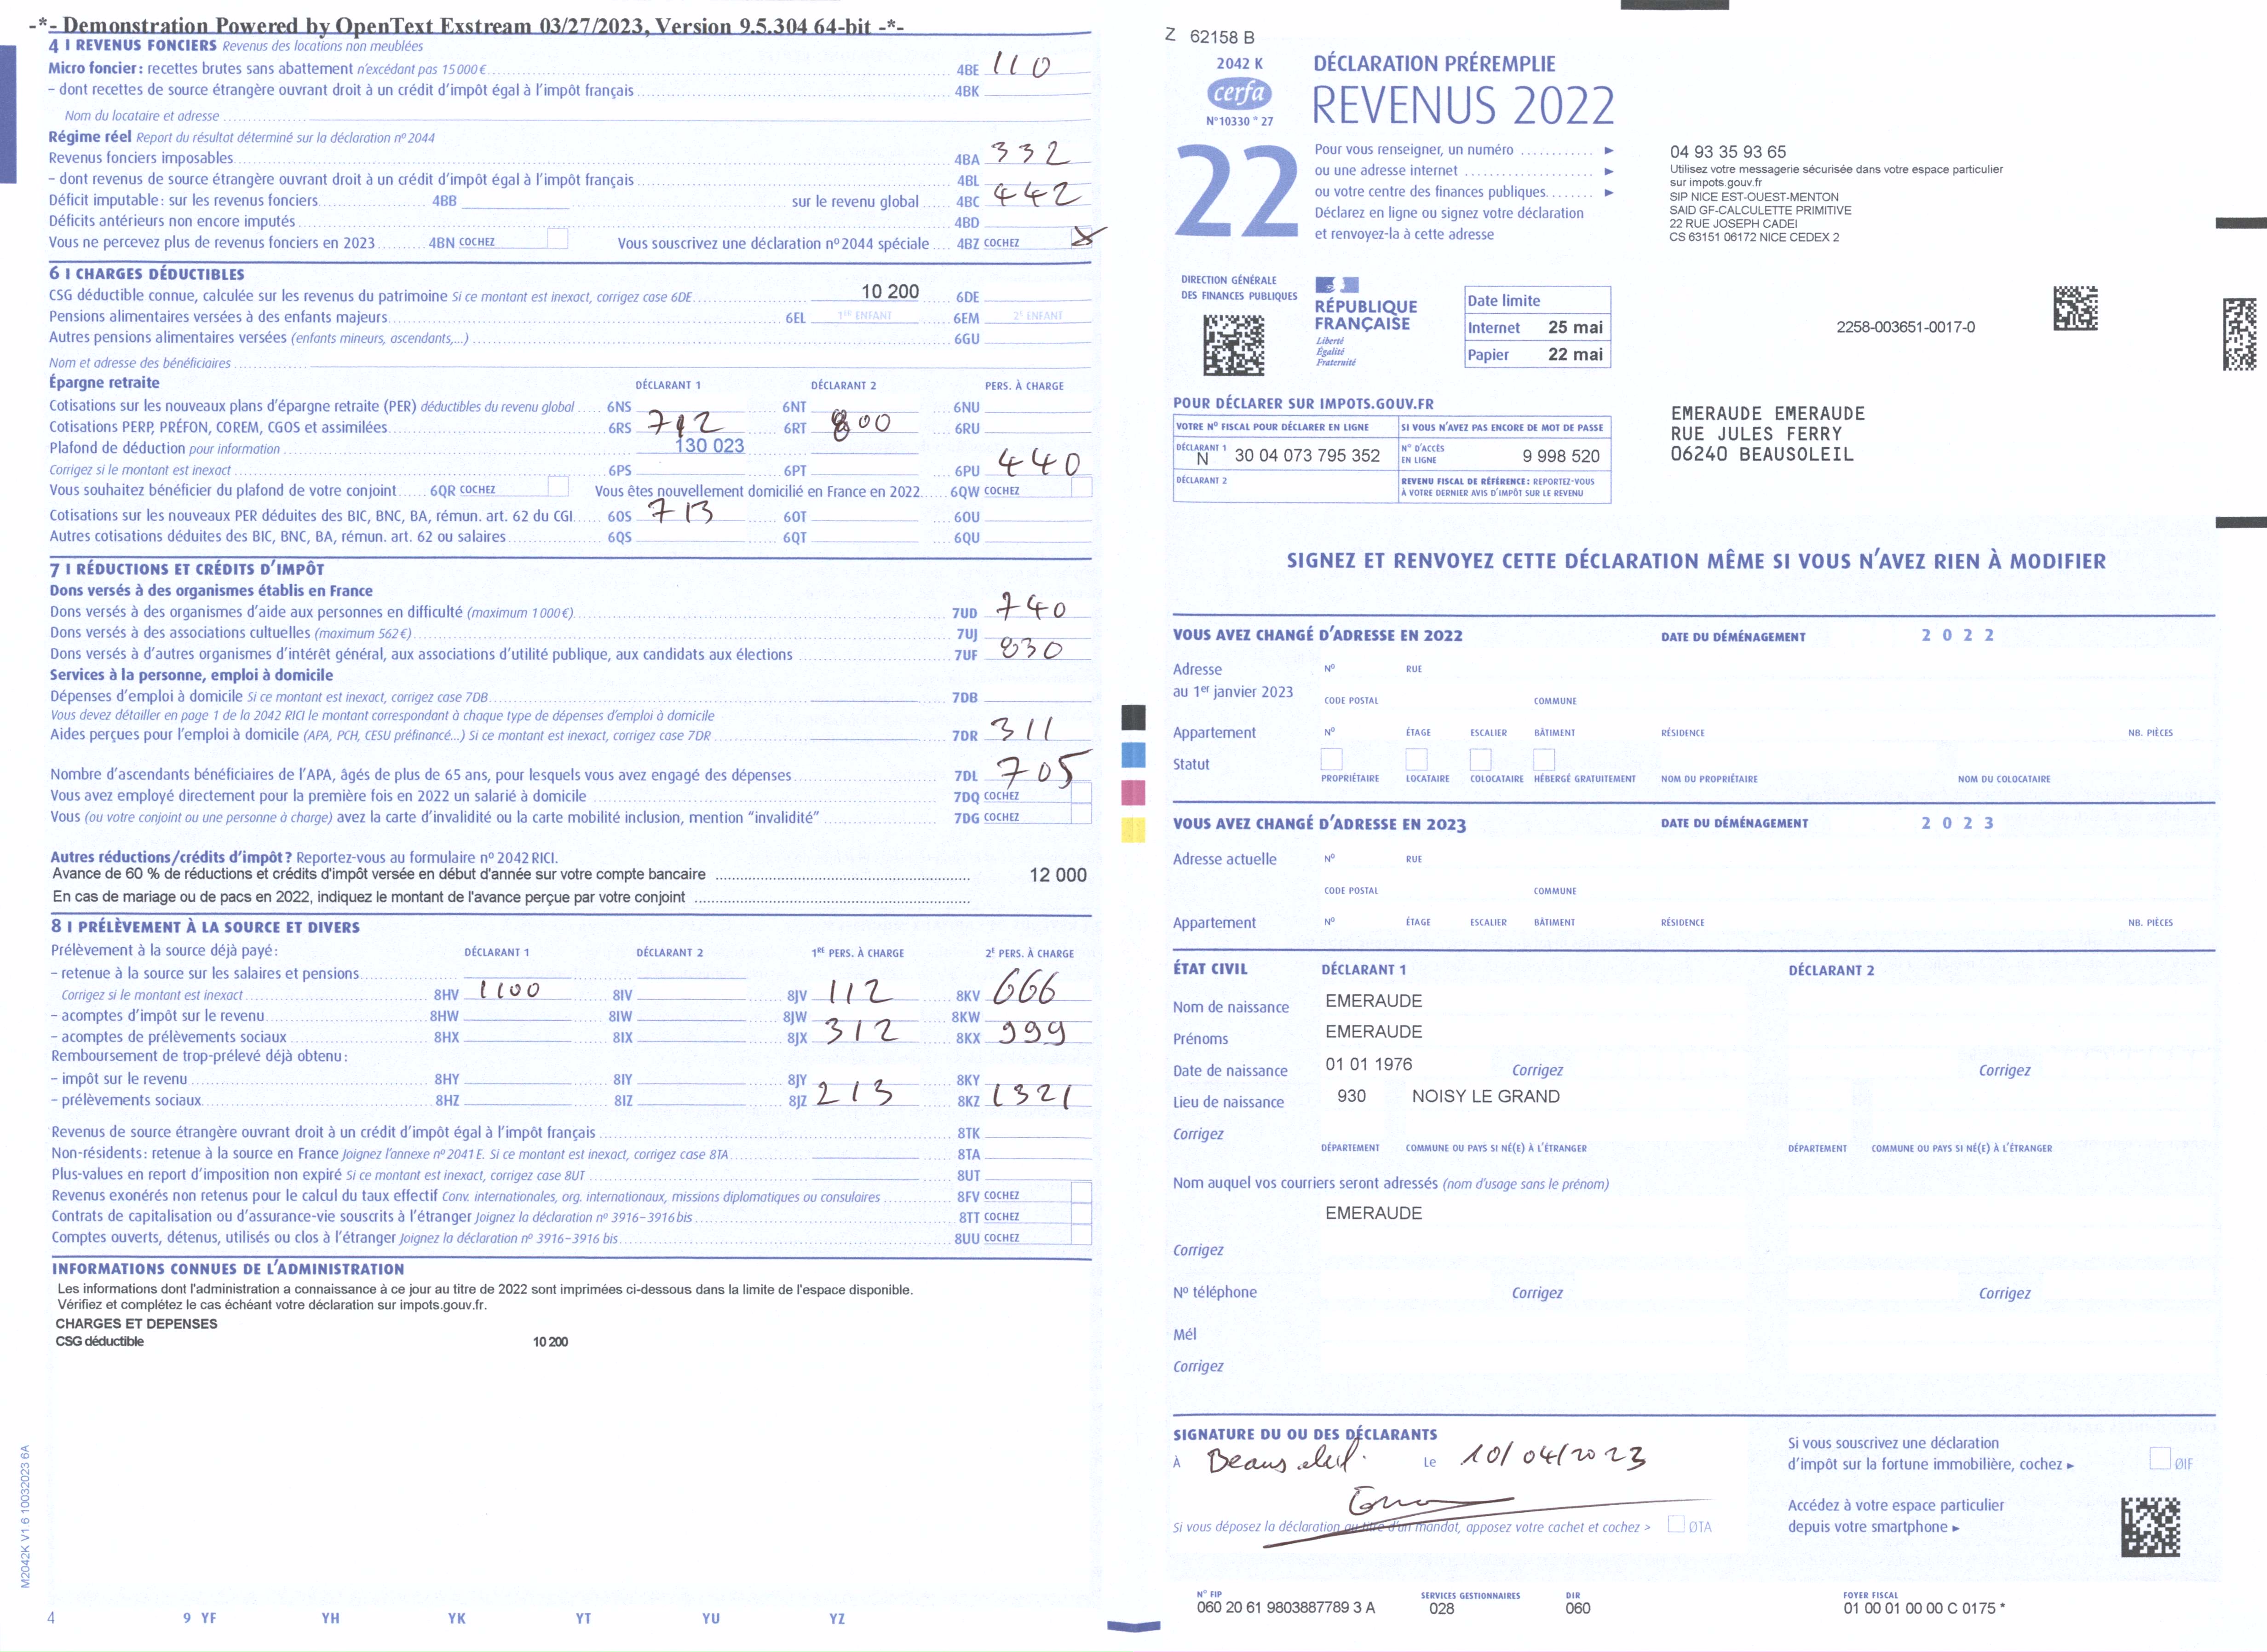 -*- Demonstration Powered by OpenText Exstream 03/27/2023, Version 9.5.304 64-bit -*-
4 I REVENUS FONCIERS Revenus des locations non meublées
Micro foncier : recettes brutes sans abattement n'excédant pas 15 000 € 4BE 110
– dont recettes de source étrangère ouvrant droit à un crédit d'impôt égal à l'impôt français 4BK
Nom du locataire et adresse
Régime réel Report du résultat déterminé sur la déclaration nº 2044
Revenus fonciers imposables 4BA 332
– dont revenus de source étrangère ouvrant droit à un crédit d'impôt égal à l'impôt français 4BL
Déficit imputable : sur les revenus fonciers 4BB sur le revenu global 4BC 442
Déficits antérieurs non encore imputés 4BD
Vous ne percevez plus de revenus fonciers en 2023 4BN COCHEZ Vous souscrivez une déclaration nº 2044 spéciale 4BZ COCHEZ X
6 I CHARGES DÉDUCTIBLES
CSG déductible connue, calculée sur les revenus du patrimoine Si ce montant est inexact, corrigez case 6DE 10 200 6DE
Pensions alimentaires versées à des enfants majeurs 6EL 1ER ENFANT 6EM 2E ENFANT
Autres pensions alimentaires versées (enfants mineurs, ascendants,...) 6GU
Nom et adresse des bénéficiaires
Épargne retraite DÉCLARANT 1 DÉCLARANT 2 PERS. À CHARGE
Cotisations sur les nouveaux plans d'épargne retraite (PER) déductibles du revenu global 6NS 6NT 6NU
Cotisations PERP, PRÉFON, COREM, CGOS et assimilées 6RS 712 6RT 800 6RU
Plafond de déduction pour information 130 023
Corrigez si le montant est inexact 6PS 6PT 6PU 440
Vous souhaitez bénéficier du plafond de votre conjoint 6QR COCHEZ Vous êtes nouvellement domicilié en France en 2022 6QW COCHEZ
Cotisations sur les nouveaux PER déduites des BIC, BNC, BA, rémun. art. 62 du CGI 6OS 713 6OT 6OU
Autres cotisations déduites des BIC, BNC, BA, rémun. art. 62 ou salaires 6QS 6QT 6QU
7 I RÉDUCTIONS ET CRÉDITS D'IMPÔT
Dons versés à des organismes établis en France
Dons versés à des organismes d'aide aux personnes en difficulté (maximum 1 000 €) 7UD 740
Dons versés à des associations cultuelles (maximum 562 €) 7UJ
Dons versés à d'autres organismes d'intérêt général, aux associations d'utilité publique, aux candidats aux élections 7UF 830
Services à la personne, emploi à domicile
Dépenses d'emploi à domicile Si ce montant est inexact, corrigez case 7DB 7DB
Vous devez détailler en page 1 de la 2042 RICI le montant correspondant à chaque type de dépenses d'emploi à domicile
Aides perçues pour l'emploi à domicile (APA, PCH, CESU préfinancé...) Si ce montant est inexact, corrigez case 7DR 7DR 311
Nombre d'ascendants bénéficiaires de l'APA, âgés de plus de 65 ans, pour lesquels vous avez engagé des dépenses 7DL 705
Vous avez employé directement pour la première fois en 2022 un salarié à domicile 7DQ COCHEZ
Vous (ou votre conjoint ou une personne à charge) avez la carte d'invalidité ou la carte mobilité inclusion, mention "invalidité" 7DG COCHEZ
Autres réductions/crédits d'impôt ? Reportez-vous au formulaire nº 2042 RICI.
Avance de 60 % de réductions et crédits d'impôt versée en début d'année sur votre compte bancaire 12 000
En cas de mariage ou de pacs en 2022, indiquez le montant de l'avance perçue par votre conjoint
8 I PRÉLÈVEMENT À LA SOURCE ET DIVERS
Prélèvement à la source déjà payé : DÉCLARANT 1 DÉCLARANT 2 1RE PERS. À CHARGE 2E PERS. À CHARGE
– retenue à la source sur les salaires et pensions
Corrigez si le montant est inexact 8HV 1100 8IV 8JV 112 8KV 666
– acomptes d'impôt sur le revenu 8HW 8IW 8JW 8KW
– acomptes de prélèvements sociaux 8HX 8IX 8JX 312 8KX 999
Remboursement de trop-prélevé déjà obtenu :
– impôt sur le revenu 8HY 8IY 8JY 8KY
– prélèvements sociaux 8HZ 8IZ 8JZ 213 8KZ 1321
Revenus de source étrangère ouvrant droit à un crédit d'impôt égal à l'impôt français 8TK
Non-résidents : retenue à la source en France Joignez l'annexe nº 2041 E. Si ce montant est inexact, corrigez case 8TA 8TA
Plus-values en report d'imposition non expiré Si ce montant est inexact, corrigez case 8UT 8UT
Revenus exonérés non retenus pour le calcul du taux effectif Conv. internationales, org. internationaux, missions diplomatiques ou consulaires 8FV COCHEZ
Contrats de capitalisation ou d'assurance-vie souscrits à l'étranger Joignez la déclaration nº 3916–3916 bis 8TT COCHEZ
Comptes ouverts, détenus, utilisés ou clos à l'étranger Joignez la déclaration nº 3916–3916 bis 8UU COCHEZ
INFORMATIONS CONNUES DE L'ADMINISTRATION
Les informations dont l'administration a connaissance à ce jour au titre de 2022 sont imprimées ci-dessous dans la limite de l'espace disponible.
Vérifiez et complétez le cas échéant votre déclaration sur impots.gouv.fr.
CHARGES ET DEPENSES
CSG déductible 10 200
M2042K V1.6 10032023 6A
4 9 YF YH YK YT YU YZ
Z 62158 B
2042 K
cerfa
N° 10330 * 27
DÉCLARATION PRÉREMPLIE
REVENUS 2022
22
Pour vous renseigner, un numéro
ou une adresse internet
ou votre centre des finances publiques
Déclarez en ligne ou signez votre déclaration
et renvoyez-la à cette adresse
04 93 35 93 65
Utilisez votre messagerie sécurisée dans votre espace particulier
sur impots.gouv.fr
SIP NICE EST-OUEST-MENTON
SAID GF-CALCULETTE PRIMITIVE
22 RUE JOSEPH CADEI
CS 63151 06172 NICE CEDEX 2
DIRECTION GÉNÉRALE
DES FINANCES PUBLIQUES
RÉPUBLIQUE
FRANÇAISE
Liberté
Égalité
Fraternité
Date limite
Internet 25 mai
Papier 22 mai
2258-003651-0017-0
POUR DÉCLARER SUR IMPOTS.GOUV.FR
VOTRE Nº FISCAL POUR DÉCLARER EN LIGNE SI VOUS N'AVEZ PAS ENCORE DE MOT DE PASSE
DÉCLARANT 1 N 30 04 073 795 352 N° D'ACCÈS EN LIGNE 9 998 520
DÉCLARANT 2 REVENU FISCAL DE RÉFÉRENCE : REPORTEZ-VOUS
À VOTRE DERNIER AVIS D'IMPÔT SUR LE REVENU
EMERAUDE EMERAUDE
RUE JULES FERRY
06240 BEAUSOLEIL
SIGNEZ ET RENVOYEZ CETTE DÉCLARATION MÊME SI VOUS N'AVEZ RIEN À MODIFIER
VOUS AVEZ CHANGÉ D'ADRESSE EN 2022 DATE DU DÉMÉNAGEMENT 2 0 2 2
Adresse Nº RUE
au 1er janvier 2023 CODE POSTAL COMMUNE
Appartement Nº ÉTAGE ESCALIER BÂTIMENT RÉSIDENCE NB. PIÈCES
Statut
PROPRIÉTAIRE LOCATAIRE COLOCATAIRE HÉBERGÉ GRATUITEMENT NOM DU PROPRIÉTAIRE NOM DU COLOCATAIRE
VOUS AVEZ CHANGÉ D'ADRESSE EN 2023 DATE DU DÉMÉNAGEMENT 2 0 2 3
Adresse actuelle Nº RUE
CODE POSTAL COMMUNE
Appartement Nº ÉTAGE ESCALIER BÂTIMENT RÉSIDENCE NB. PIÈCES
ÉTAT CIVIL DÉCLARANT 1 DÉCLARANT 2
Nom de naissance EMERAUDE
Prénoms EMERAUDE
Date de naissance 01 01 1976 Corrigez Corrigez
Lieu de naissance 930 NOISY LE GRAND
Corrigez
DÉPARTEMENT COMMUNE OU PAYS SI NÉ(E) À L'ÉTRANGER DÉPARTEMENT COMMUNE OU PAYS SI NÉ(E) À L'ÉTRANGER
Nom auquel vos courriers seront adressés (nom d'usage sans le prénom)
EMERAUDE
Corrigez
Nº téléphone Corrigez Corrigez
Mél
Corrigez
SIGNATURE DU OU DES DÉCLARANTS
À Beausoleil. Le 10/04/2023
Si vous déposez la déclaration au titre d'un mandat, apposez votre cachet et cochez > ØTA
Si vous souscrivez une déclaration
d'impôt sur la fortune immobilière, cochez ► ØIF
Accédez à votre espace particulier
depuis votre smartphone ►
N° FIP SERVICES GESTIONNAIRES DIR FOYER FISCAL
060 20 61 9803887789 3 A 028 060 01 00 01 00 00 C 0175 *